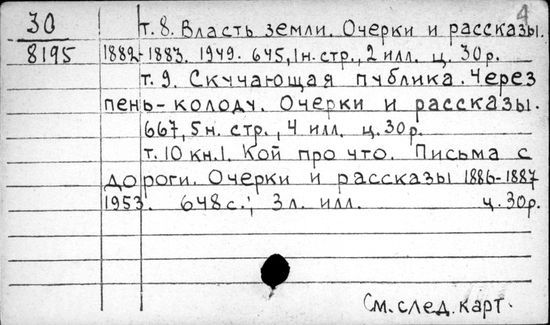 4
30
8195
т. 8. Власть земли. Очерки и рассказы.
1882-1883. 1949. 645, 1н. стр., 2 илл. ц. 30р.
т. 9. Скучающая публика. Через
пень-колоду. Очерки и рассказы.
667, 5н. стр., 4 илл. ц. 30р.
т. 10 кн. 1. Кой про что. Письма с
дороги. Очерки и рассказы 1886-1887
1953. 648 с.; 3 л. илл. ц. 30р.
См. след. карт.